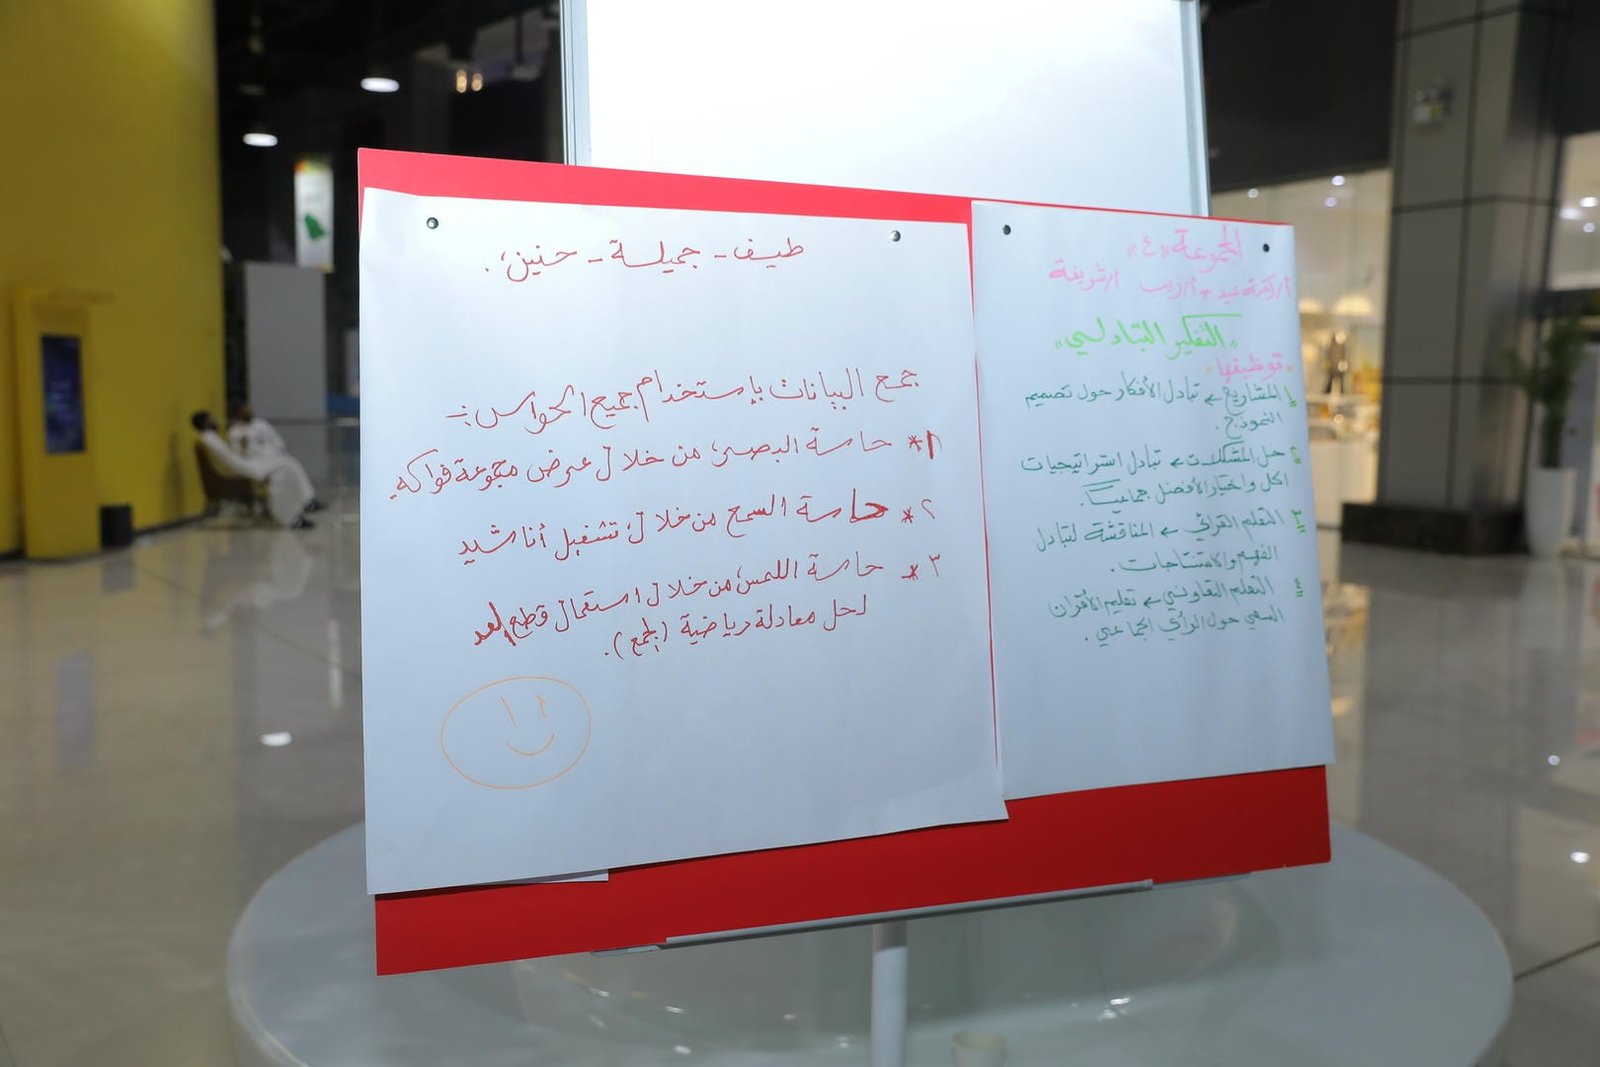 طيف - جميلة - حنين .
جمع البيانات بإستخدام جميع الحواس :-
١* حاسة البصر من خلال عرض مجموعة فواكه
٢* حاسة السمع من خلال تشغيل أناشيد
٣* حاسة اللمس من خلال استعمال قطع العد
لحل معادلة رياضية (الجمع).
المجموعة «٤»
أ/شريفة
"التفكير التبادلي"
"توظيفها"
١ المشاريع ← تبادل الأفكار حول تصميم
النموذج.
٢ حل المشكلات ← تبادل استراتيجيات
الحل واختيار الأفضل جماعياً.
٣ التعلم القرائي ← المناقشة لتبادل
الفهم والاستنتاجات.
٤ التعلم التعاوني ← تعليم الأقران
السعي حول الرأي الجماعي.